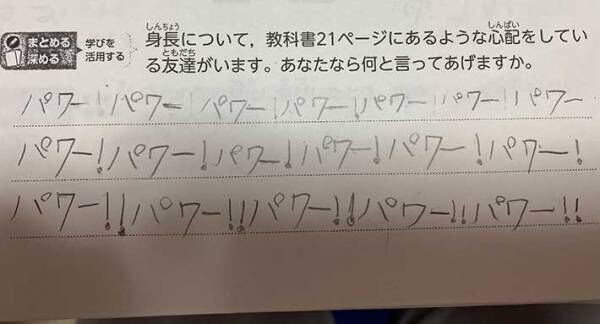 まとめる 深める 学びを活用する
身長について，教科書21ページにあるような心配をしてい
る友達がいます。あなたなら何と言ってあげますか。
パワー！パワー！パワー！パワー！パワー！パワー！パワー
パワー！パワー！パワー！パワー！パワー！パワー！
パワー！！パワー！！パワー！！パワー！！パワー！！